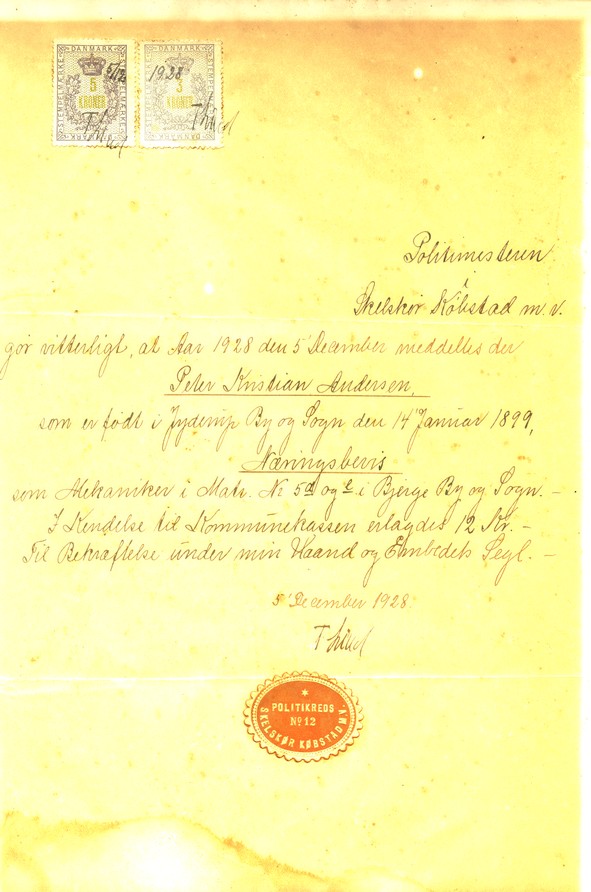 DANMARK DANMARK
STEMPELMÆRKE
5/12 1928
5 KRONER
3 KRONER
Politimesteren
i
Skelskør Købstad m. v.
gør vitterligt, at Aar 1928 den 5' December meddeltes der
Peter Kristian Andersen,
som er født i Jyderup By og Sogn den 14' Januar 1899,
Næringsbevis
som Mekaniker i Matr. № 5d og e i Bjerge By og Sogn. —
I Kendelse til Kommunekassen erlagdes 12 Kr. —
Til Bekræftelse under min Haand og Embedets Segl. —
5' December 1928.
POLITIKREDS
No 12
SKELSKØR KØBSTAD M.V.